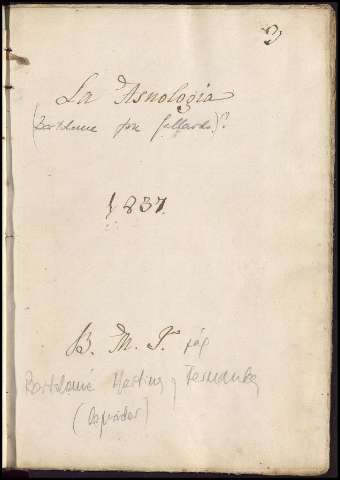 La Asnologia
(Bartolome Jose Gallardo)?
1837.
B. M. F.
Bartolomé Martinez y Fernandez